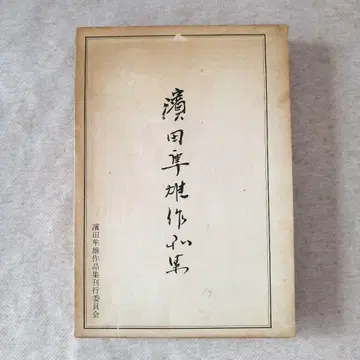 濱田隼雄作品集
濱田隼雄作品集刊行委員会